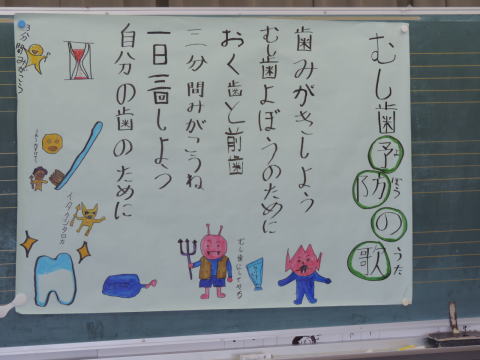 むし歯予防の歌
よぼう
うた
歯みがきしよう
むし歯よぼうのために
おく歯と前歯
三分間みがこうね
一日三回しよう
自分の歯のために
3分間みがこう
むし歯にしてやる